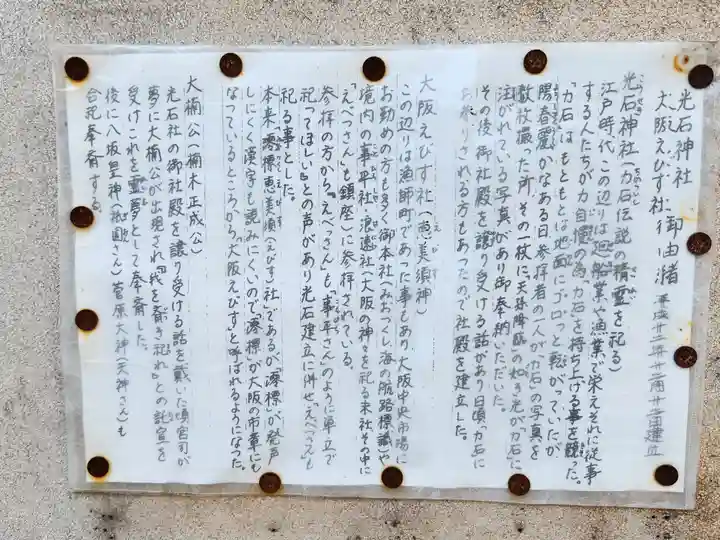 光石神社
大阪えびす社 御由緒 平成廿二年十二月廿二日建立
光石神社(力石伝説の精霊を祀る)
江戸時代この辺りは廻船業や漁業で栄えそれに従事
する人たちが力自慢の為「力石」を持ち上げる事を競った。
「力石」はもともとは地面にゴロっと転がっていたが
陽春麗かなある日参拝者の人が「力石」の写真を
数枚撮った所、その一枚に天孫降臨の如き光が「力石」に
注がれている写真があり御奉納いただいた。
その後御社殿を譲り受ける話があり日頃「力石」に
お参りされる方もあったので社殿を建立した。
大阪えびす社(恵美須神)
この辺りは漁師町であった事もあり大阪中央市場に
お勤めの方も多く御本社(みおつくし海の航路標識)や
境内の事平社、浪速社(大阪の神々を祀る末社その中に
「えべっさん」も鎮座)に参拝されている。
参拝の方から「えべっさん」も「事平さん」のように単立で
祀ってほしい」との声があり光石建立に併せ「えべっさん」も
祀る事とした。
本来「澪標恵美須(えびす)社」であるが「澪標」が発声
しにくく漢字も読みにくいので「澪標」が大阪の市章にも
なっているところから大阪えびすと呼ばれるようになった。
大楠公(楠木正成公)
光石社の御社殿を譲り受ける話を戴いた頃宮司が
夢に大楠公が出現され『我を斎き祀れ』との託宣を
受けこれを霊夢として奉斎した。
後に八坂皇神(祇園さん)菅原大神(天神さん)も
合祀奉斎する。